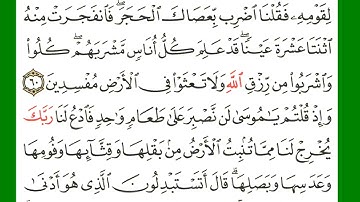 لِقَوْمِهِۦ فَقُلْنَا ٱضْرِب بِّعَصَاكَ ٱلْحَجَرَ ۖ فَٱنفَجَرَتْ مِنْهُ
ٱثْنَتَا عَشْرَةَ عَيْنًا ۖ قَدْ عَلِمَ كُلُّ أُنَاسٍ مَّشْرَبَهُمْ ۖ كُلُوا۟
وَٱشْرَبُوا۟ مِن رِّزْقِ ٱللَّهِ وَلَا تَعْثَوْا۟ فِى ٱلْأَرْضِ مُفْسِدِينَ ٦٠
وَإِذْ قُلْتُمْ يَـٰمُوسَىٰ لَن نَّصْبِرَ عَلَىٰ طَعَامٍ وَٰحِدٍ فَٱدْعُ لَنَا رَبَّكَ
يُخْرِجْ لَنَا مِمَّا تُنۢبِتُ ٱلْأَرْضُ مِنۢ بَقْلِهَا وَقِثَّآئِهَا وَفُومِهَا
وَعَدَسِهَا وَبَصَلِهَا ۖ قَالَ أَتَسْتَبْدِلُونَ ٱلَّذِى هُوَ أَدْنَىٰ